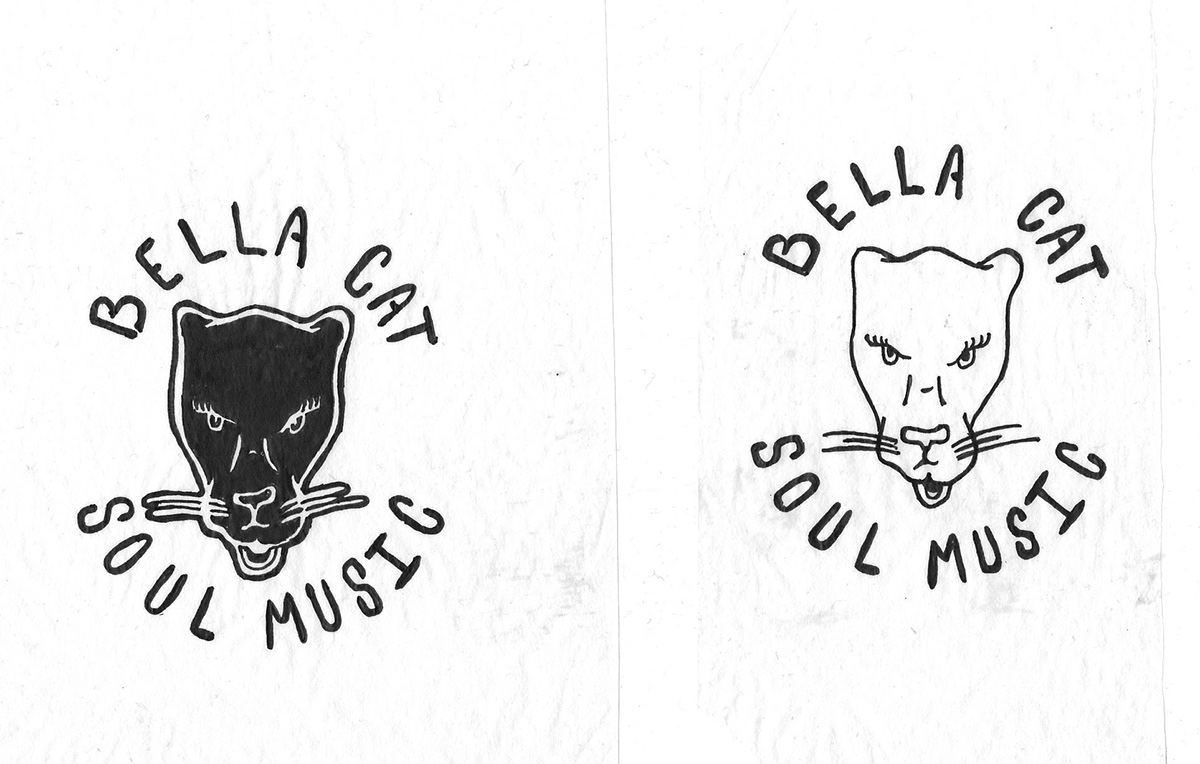 BELLA CAT
SOUL MUSIC
BELLA CAT
SOUL MUSIC